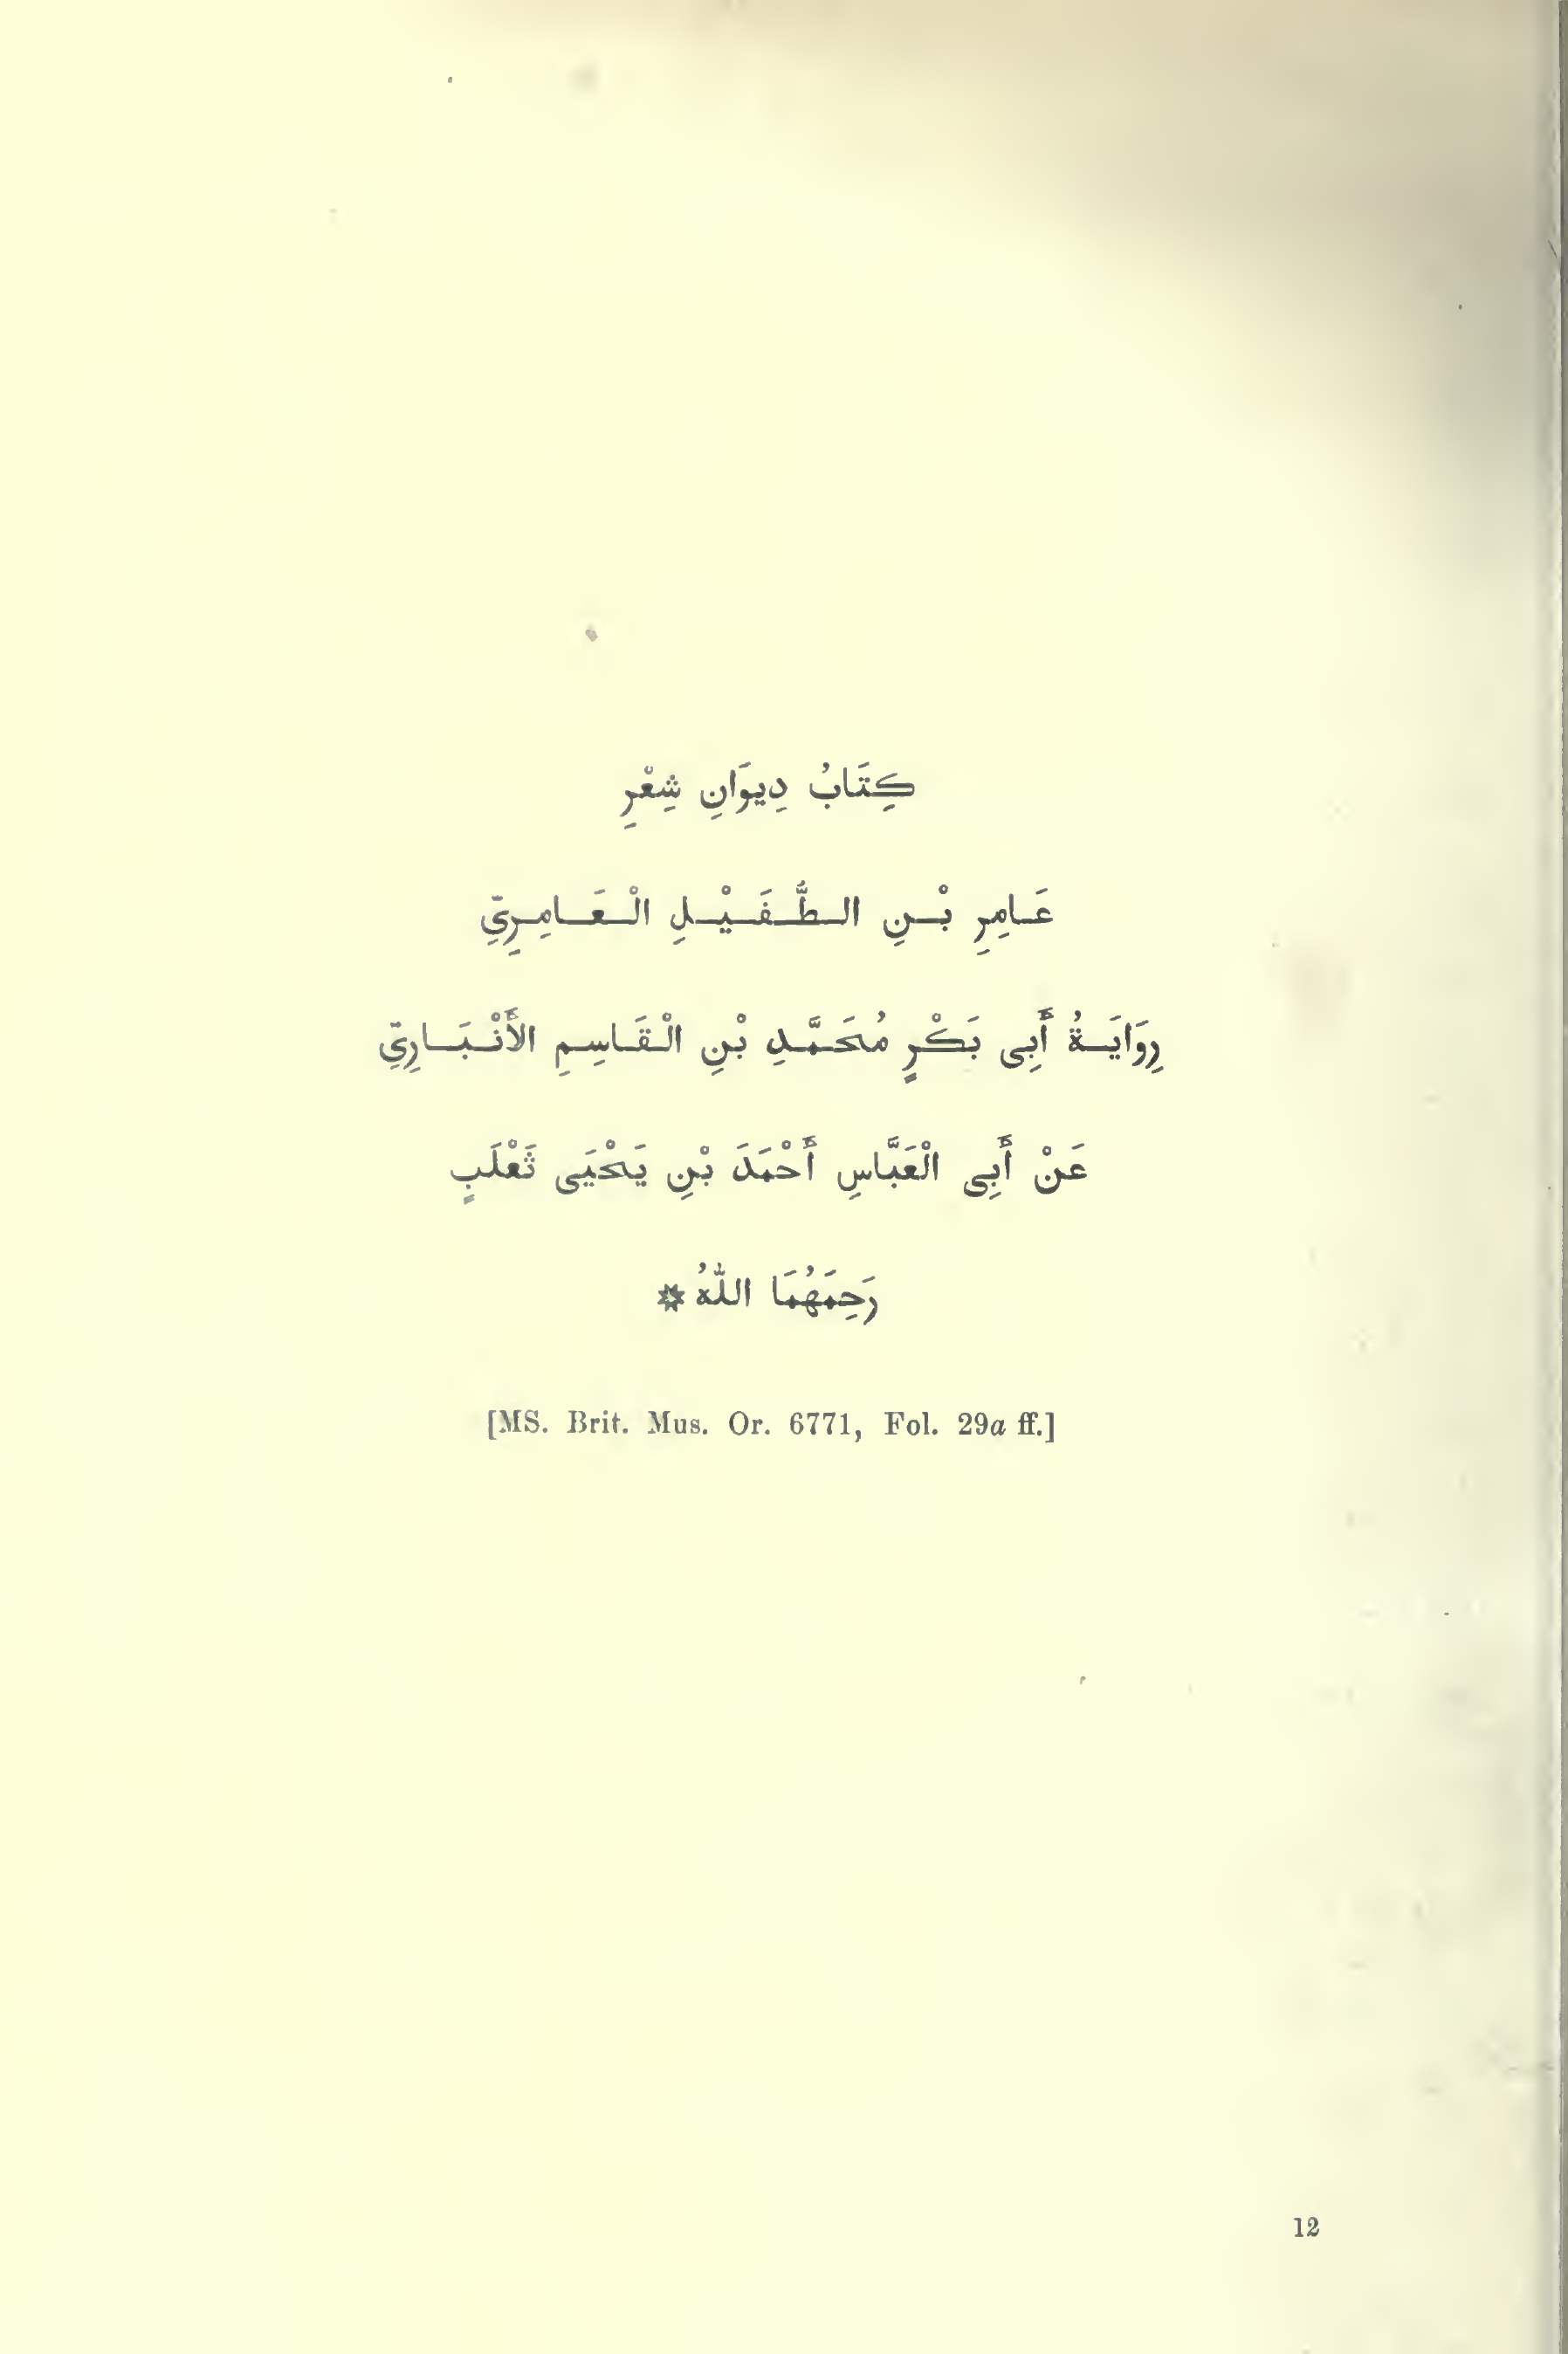 كِتَابُ دِيوَانِ شِعْرِ
عَامِرِ بْنِ الطُّفَيْلِ الْعَامِرِيِّ
رِوَايَةُ أَبِى بَكْرٍ مُحَمَّدِ بْنِ الْقَاسِمِ الأَنْبَارِيِّ
عَنْ أَبِى الْعَبَّاسِ أَحْمَدَ بْنِ يَحْيَى ثَعْلَبٍ
رَحِمَهُمَا اللّٰهُ ✵
[MS. Brit. Mus. Or. 6771, Fol. 29a ff.]
12